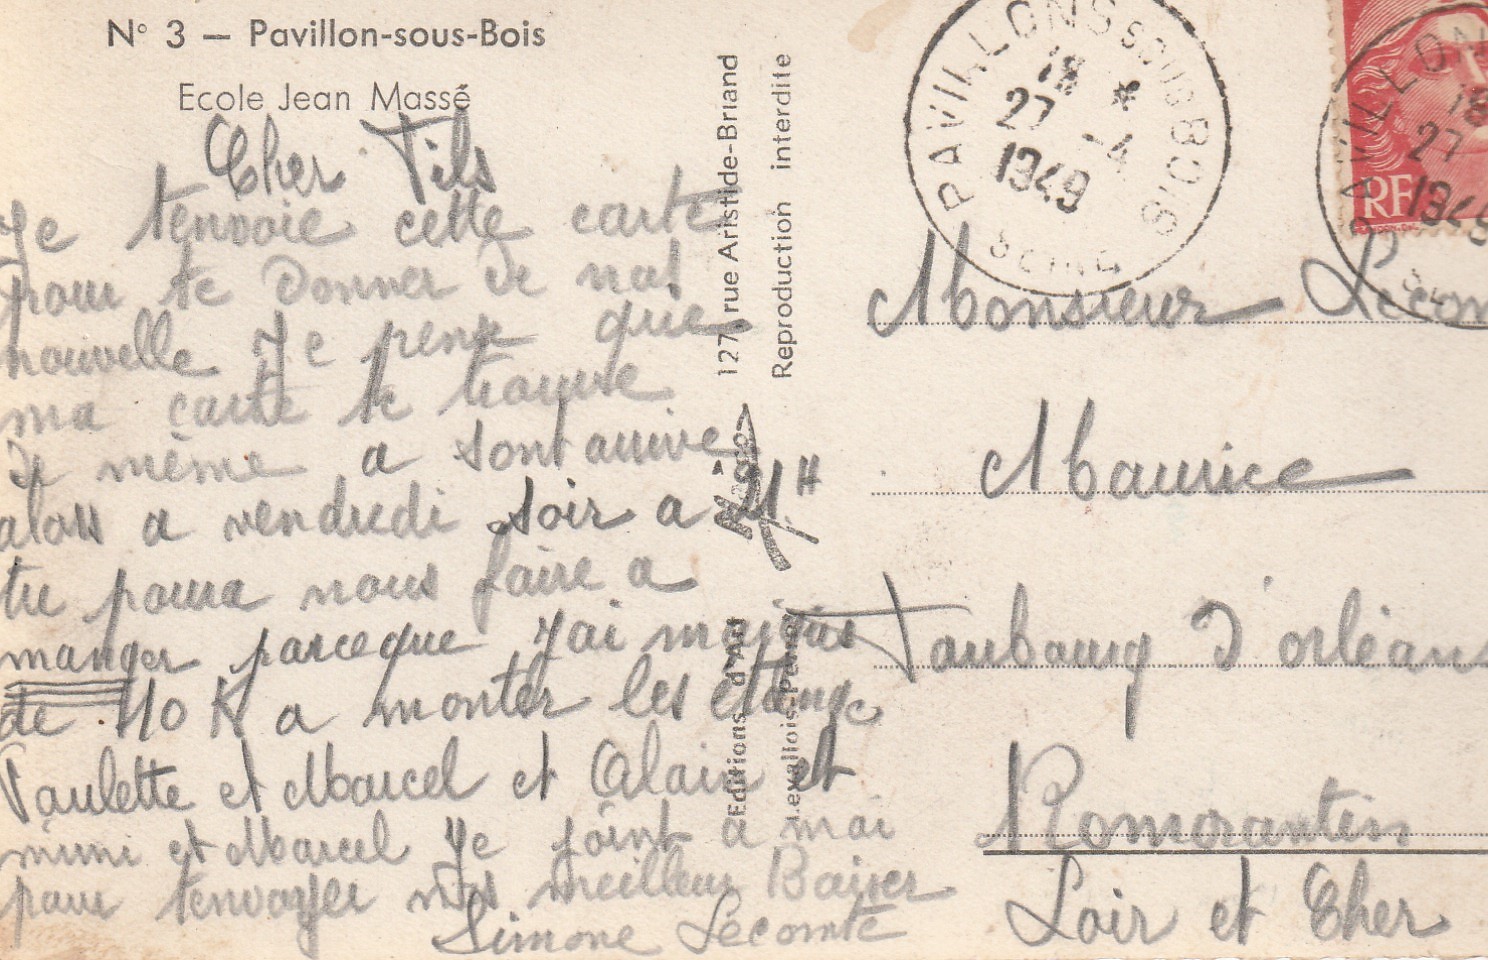 N° 3 — Pavillon-sous-Bois
Ecole Jean Massé
Cher Fils
Je tenvoie cette carte
pour te donner de nos
nouvelle Je pense que
ma carte te trouve
de même a sont arrive
alors a vendredi soir a 21 H
tu poura nous faire a
manger parceque J'ai maigris
de 110 K a monter les étange
Paulette et Marcel et Alain et
mimi et Marcel Je joint a moi
pour tenvoyer nos meilleur Baiser
Simone Lecomte
127 rue Aristide-Briand
Reproduction interdite
Editions d'Art
Levallois-Perret
PAVILLONS SOUS BOIS
18 *
27 -4
1949
SEINE
PAVILLONS
18
27
1949
RF
Monsieur Lecom
Maurice
Faubourg d'orléans
Romorantin
Loir et Cher